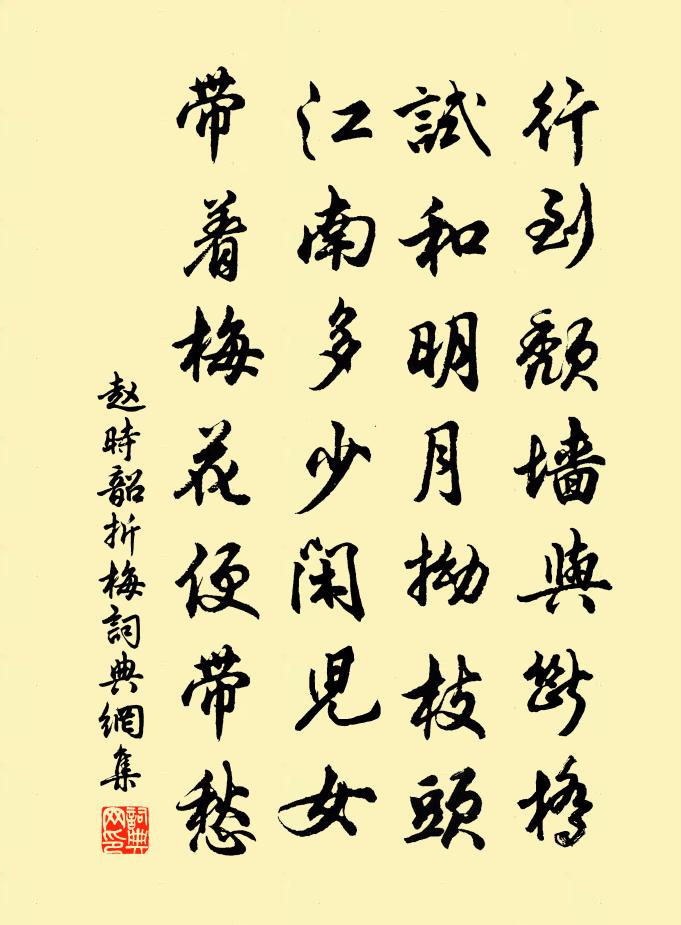 行到頹墙與斷橋
試和明月拗枝頭
江南多少閑兒女
带着梅花便带愁
赵時韶折梅詞典網集
詞典網印